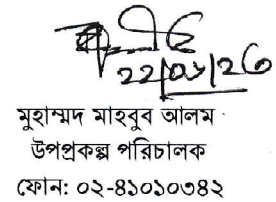 ২২/০৬/২৩
মুহাম্মদ মাহবুব আলম
উপপ্রকল্প পরিচালক
ফোন: ০২-৪১০১০৩৪২